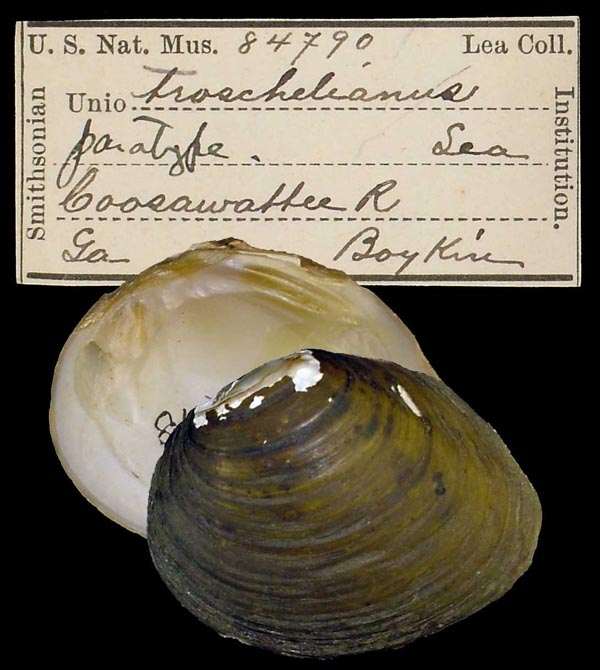 U. S. Nat. Mus. 84790 Lea Coll.
Unio troschelianus
paratype. Lea
Coosawattee R
Ga Boykin
Smithsonian
Institution.
8